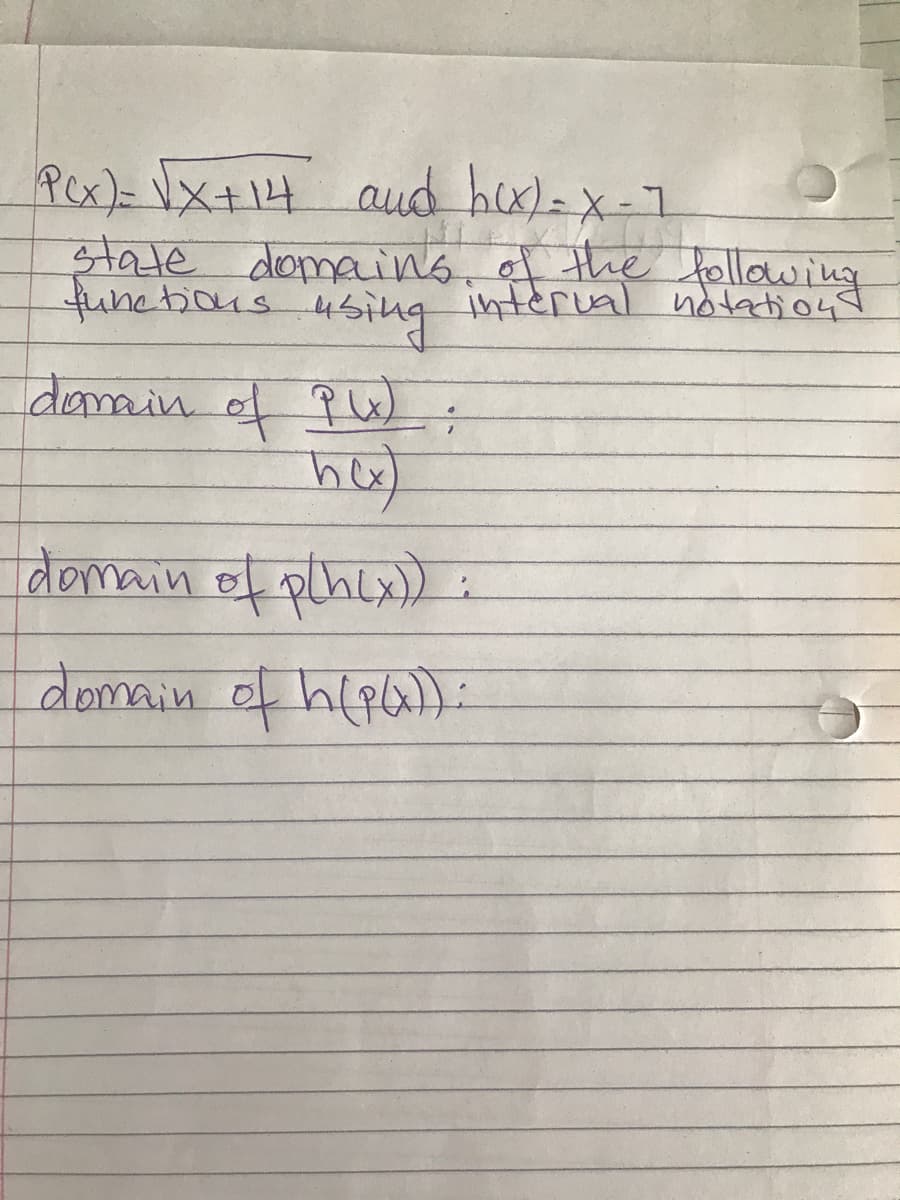 P(x)= √x+14 and h(x)=x-7
state domains of the following
functions using interval notation
domain of P(x) :
h(x)
domain of p(h(x)) :
domain of h(p(x)) :